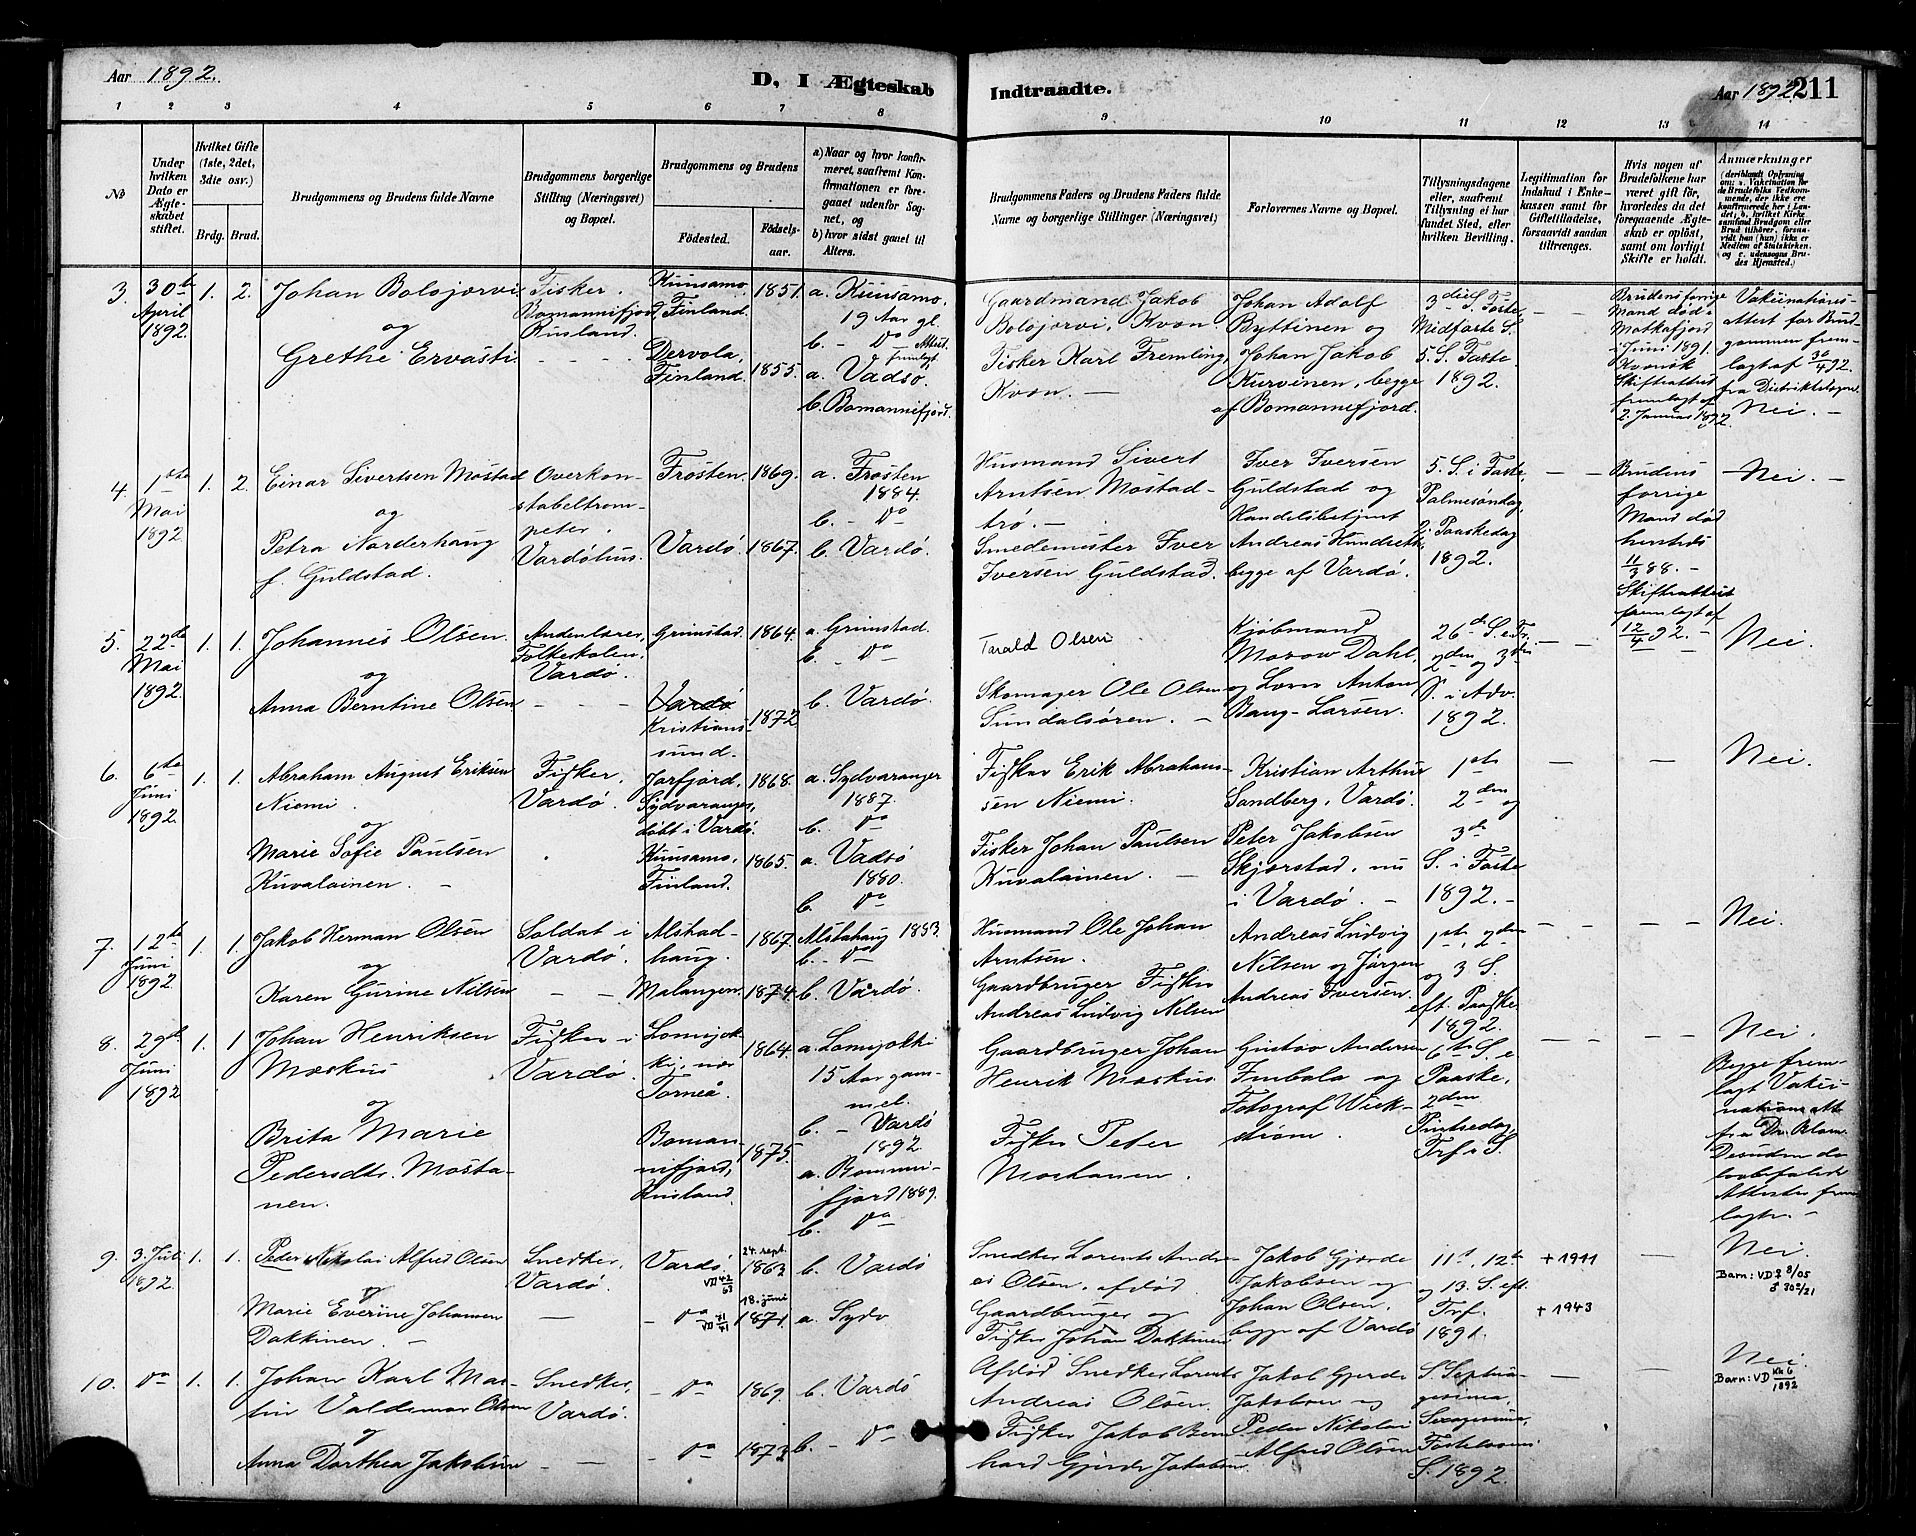 Aar 1892.
D. I Ægteskab
Indtraadte.
Aar 1892. 211
1 2 3 4 5 6 7 8 9 10 11 12 13 14
No
Under hvilken Dato er Ægteskabet stiftet.
Hvilket Gifte (1ste, 2det, 3die osv.)
Brdg. Brud.
Brudgommens og Brudens fulde Navne
Brudgommens borgerlige Stilling (Næringsvei) og Bopæl.
Brudgommens og Brudens
Födested.
Födselsaar.
a) Naar og hvor konfirmeret, saafremt Konfirmationen er foregaaet udenfor Sognet, og
b) hvor sidst gaaet til Alters.
Brudgommens Faders og Brudens Faders fulde Navne og borgerlige Stillinger (Næringsvei)
Forlovernes Navne og Bopæl.
Tillysningsdagene eller, saafremt Tillysning ei har fundet Sted, efter hvilken Bevilling.
Legitimation for Indskud i Enkekassen samt for Giftetilladelse, forsaavidt saadan tiltrænges.
Hvis nogen af Brudefolkene har været gift før, hvorledes da det foregaaende Ægteskab er opløst, samt om lovligt Skifte er holdt.
Anmærkninger (deriblandt Oplysning om: a. Vakcination for de Brudefolks Vedkommende, der ikke ere konfirmerede her i Landet; b. hvilket Kirkesamfund Brudgom eller Brud tilhører, forsaavidt han (hun) ikke er Medlem af Statskirken, og c. udensogns Brudes Hjemsted.)
3. 30te April 1892. 1. 2.
Johan Bolojorvi
og
Grethe Ervasti
Fisker.
Bomannifjord,
Rusland.
Kuusamo,
Finland.
Dervola,
Finland.
1851.
1855.
a. Kuusamo.
19 Aar gl.
b. - do Attest fremlagt
a. Vadsø.
b. Bomannifjord.
Gaardmand Jakob
Bolojorvi, Kvæn
Fisker Karl Fremling,
Kvæn. —
Johan Adolf
Byttinen og
Johan Jakob
Kurvinen, begge
af Bomannefjord.
3die S. i Faste,
Midfaste S.
5. S. Faste
1892.
— —
Brudens forrige
Mand død i
Motkafjord
i Juni 1891.
Kvensk
Skifteattest
fremlagt af
2. Januar 1892.
Vakcinations-
attest for Brud-
gommen frem-
lagt af 30/4 92.
fra Distriktslægen.
Nei. —
4. 1ste Mai 1892 1. 2.
Einar Sivertsen Mostad
og
Petra Norderhaug
f. Guldstad.
Overkon-
stabeltrom-
peter.
Vardöhus.
Frosten.
Vardö.
1869.
1867.
a. Frosten
1884.
b. - do
b. Vardö.
Husmand Sivert
Arntsen Mostad-
trø. —
Smedemester Iver
Iversen Guldstad.
Iver Iversen
Guldstad og
Handelsbetjent
Andreas Hundseth,
begge af Vardö.
5. S. i Faste,
Palmesøndag,
2. Paaskedag
1892.
— —
Brudens
forrige
Mand död
hersteds
11/3 88. —
Skifteattest
fremlagt af
12/4 92. —
— Nei. —
5. 22de Mai 1892 1. 1.
Johannes Olsen.
og
Anna Berntine Olsen
Andenlærer,
Folkeskolen,
Vardö.
Grimstad.
Vardö
Kristians-
sund.
1864.
1872
a. Grimstad.
b. - do
b. Vardö.
Tarald Olsen
Skomager Ole Olsen
Sundalsören. —
Kjøbmand
Morow Dahl,
og Lorns Anton
Bang-Larsen.
26de S. e. Tr.
2den og 3die
S. i Adv.
1892.
— —
Nei.
6. 6te Juni 1892 1. 1.
Abraham August Eriksen
Niemi.
og
Marie Sofie Paulsen
Kuvalainen. —
Fisker,
Vardö.
Jarfjord,
Sydvaranger,
döbt i Vardö.
Kuusamo,
Finland.
1868.
1865.
a. Sydvaranger
1887.
b. do
a. Vadsö
1880.
b. do
Fisker Erik Abraham-
sen Niemi.
Fisker Johan Paulsen
Kuvalainen. —
Kristian Arthur
Sandberg, Vardö.
Peter Jakobsen
Skjerstad, nu
i Vardö. —
1ste
2den og
3de
S. i Faste
1892. —
— —
Nei.
7. 12te Juni 1892 1. 1.
Jakob Herman Olsen
og
Karen Gurine Nilsen
Soldat i
Vardö.
Alstad-
haug.
Malangen.
1867.
1874.
Alstahaug 1883.
b. - do
b. Vardö.
Husmand Ole Johan
Arntsen.
Gaardbruger Fisker
Andreas Ludvig Nilsen
Andreas Ludvig
Nilsen og Jörgen
Andreas Iversen.
1ste, 2den
og 3 S.
eft. Paaske
1892.
— — —
Nei.
8. 29de Juni 1892 1. 1
Johan Henriksen
Moskus
og
Brita Marie
Pedersdtr. Mosta-
nen.
Fisker i
Vardö.
Lomijok-
ki, nær
Torneå
Boman-
nifjord,
Rusland.
1864.
1875.
a. Lomijokki
15 Aar gam-
mel.
b. - Vardö
1892.
a. Bomanni-
fjord 1889.
b. do
Gaardbruger Johan
Henrik Moskus
Fisker Peter
Mostanen.
Gustav Andersen
Fotograf Wick-
ström.
6te S. e
Paaske,
2den
Pintsedag,
Trf. S.
— —
Nei.
Begge frem-
lagt Vakci-
nations att.
fra Dr. Blom.
Desuden
Attester frem-
lagt. —
9. 3. Juli 1892. 1. 1.
Peder Nikolai Alfred Olsen
og
Marie Everine Johansen
Dakkinen —
Snedker,
Vardö.
Vardö.
do
24. sept.
1863
18. juni
1871.
b. Vardö
a. Sydv
Snedker Lorents Andre-
as Olsen, afdöd.
Gaardbruger og
Fisker Johan Dakkinen
Jakob Gjerde
Jakobsen og
Johan Olsen,
begge af Vardö
11te, 12te
og 13. S. eft.
Trf.
1891.
+ 1911
+ 1943
—
Nei.
Barn: VD ♀ 8/05
♂ 30²/21
10. do 1. 1.
Johan Karl Mar-
tin Valdemar Olsen
og
Anna Dorthea Jakobsen
Snedker,
Vardö.
— do
— do
1869.
1873
b. Vardö
b. - do
Afdöd Snedker Lorents
Andreas Olsen.
Fisker Jakob Bern-
hard Gjerde Jakobsen
Jakob Gjerde
Jakobsen og
Peder Nikolai
Alfred Olsen
S. Septua-
gesima,
Sexagesima,
Fastelavns
S. 1892.
— —
Nei.
Barn: VD Kk 6/1892